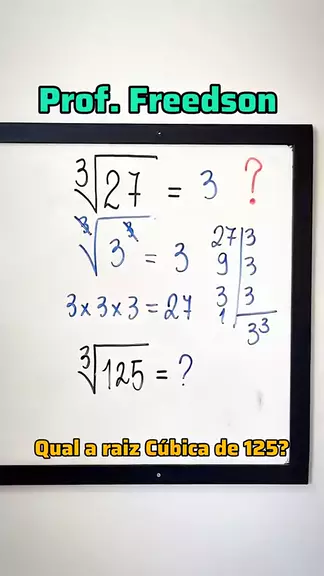 Prof. Freedson
∛27 = 3 ?
∛3³ = 3
3 x 3 x 3 = 27
27 | 3
9 | 3
3 | 3
1 | 3³
∛125 = ?
Qual a raiz Cúbica de 125?